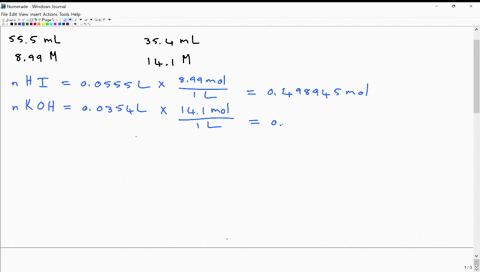 Numerade - Windows Journal
File Edit View Insert Actions Tools Help
55.5 mL 35.4 mL
8.99 M 14.1 M
n HI = 0.0555 L × 8.99 mol / 1 L = 0.498945 mol
n KOH = 0.0354 L × 14.1 mol / 1 L = 0.
1 / 5